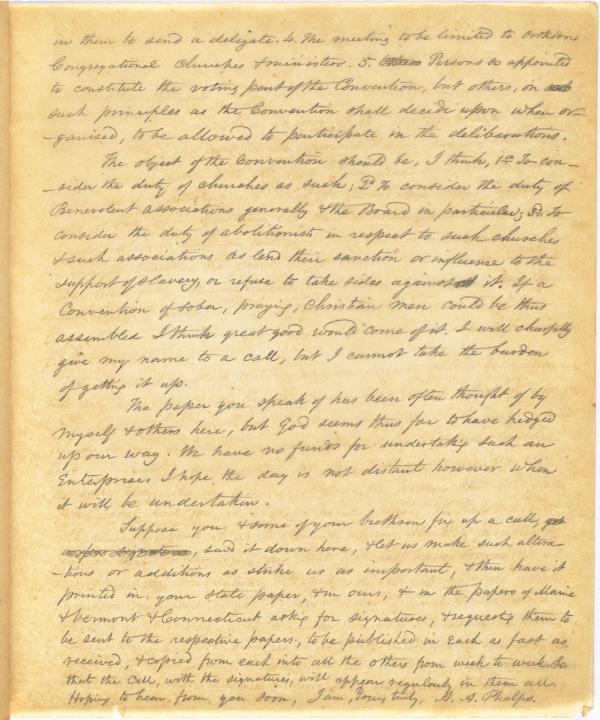 in them to send a delegate. 4. The meeting to be limited to Orthodox
Congregational Churches & ministers. 5. Persons so appointed
to constitute the voting part of the Convention, but others, on
such principles as the Convention shall decide upon when or-
-ganised, to be allowed to participate in the deliberations.
The object of the Convention should be, I think, 1st To con-
-sider the duty of churches as such; 2d To consider the duty of
Benevolent Associations generally & the Board in particular; 3d. To
consider the duty of abolitionists in respect to such churches
& such associations as lend their sanction or influence to the
support of slavery, or refuse to take sides against it. If a
Convention of sober, praying, Christian men could be thus
assembled I think great good would come of it. I will cheerfully
give my name to a call, but I cannot take the burden
of getting it up.
The paper you speak of has been often thought of by
myself & others here, but God seems thus far to have hedged
up our way. We have no funds for undertaking such an
Enterprise. I hope the day is not distant however when
it will be undertaken.
Suppose you & some of your brethren fix up a call,
, send it down here, & let us make such altera-
-tions or additions as strike us as important, & then have it
printed in your state paper, & in ours, & in the papers of Maine
& Vermont & Connecticut asking for signatures, & requesting them to
be sent to the respective papers, to be published in each as fast as
received, & copied from each into all the others from week to week so
that the call, with the signatures, will appear regularly in them all.
Hoping to hear from you soon, I am, Yours truly, A. A. Phelps.